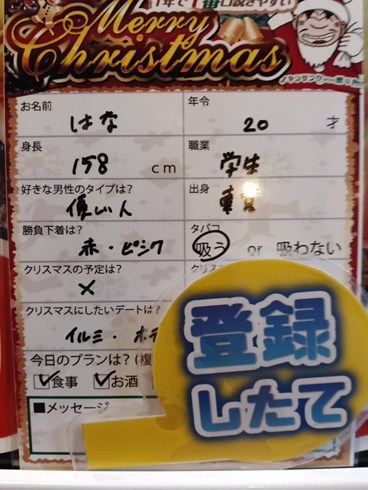 1年で1番口説きやすい
Merry
Christmas
お名前 はな
年令 20 才
身長 158 cm
職業 学生
好きな男性のタイプは? 優しい人
出身 東京
勝負下着は? 赤・ピンク
タバコ 吸う or 吸わない
クリスマスの予定は? ×
クリス
クリスマスにしたいデートは?
イルミ・ホテ
今日のプランは?(複
食事 お酒
■メッセージ
登録
したて